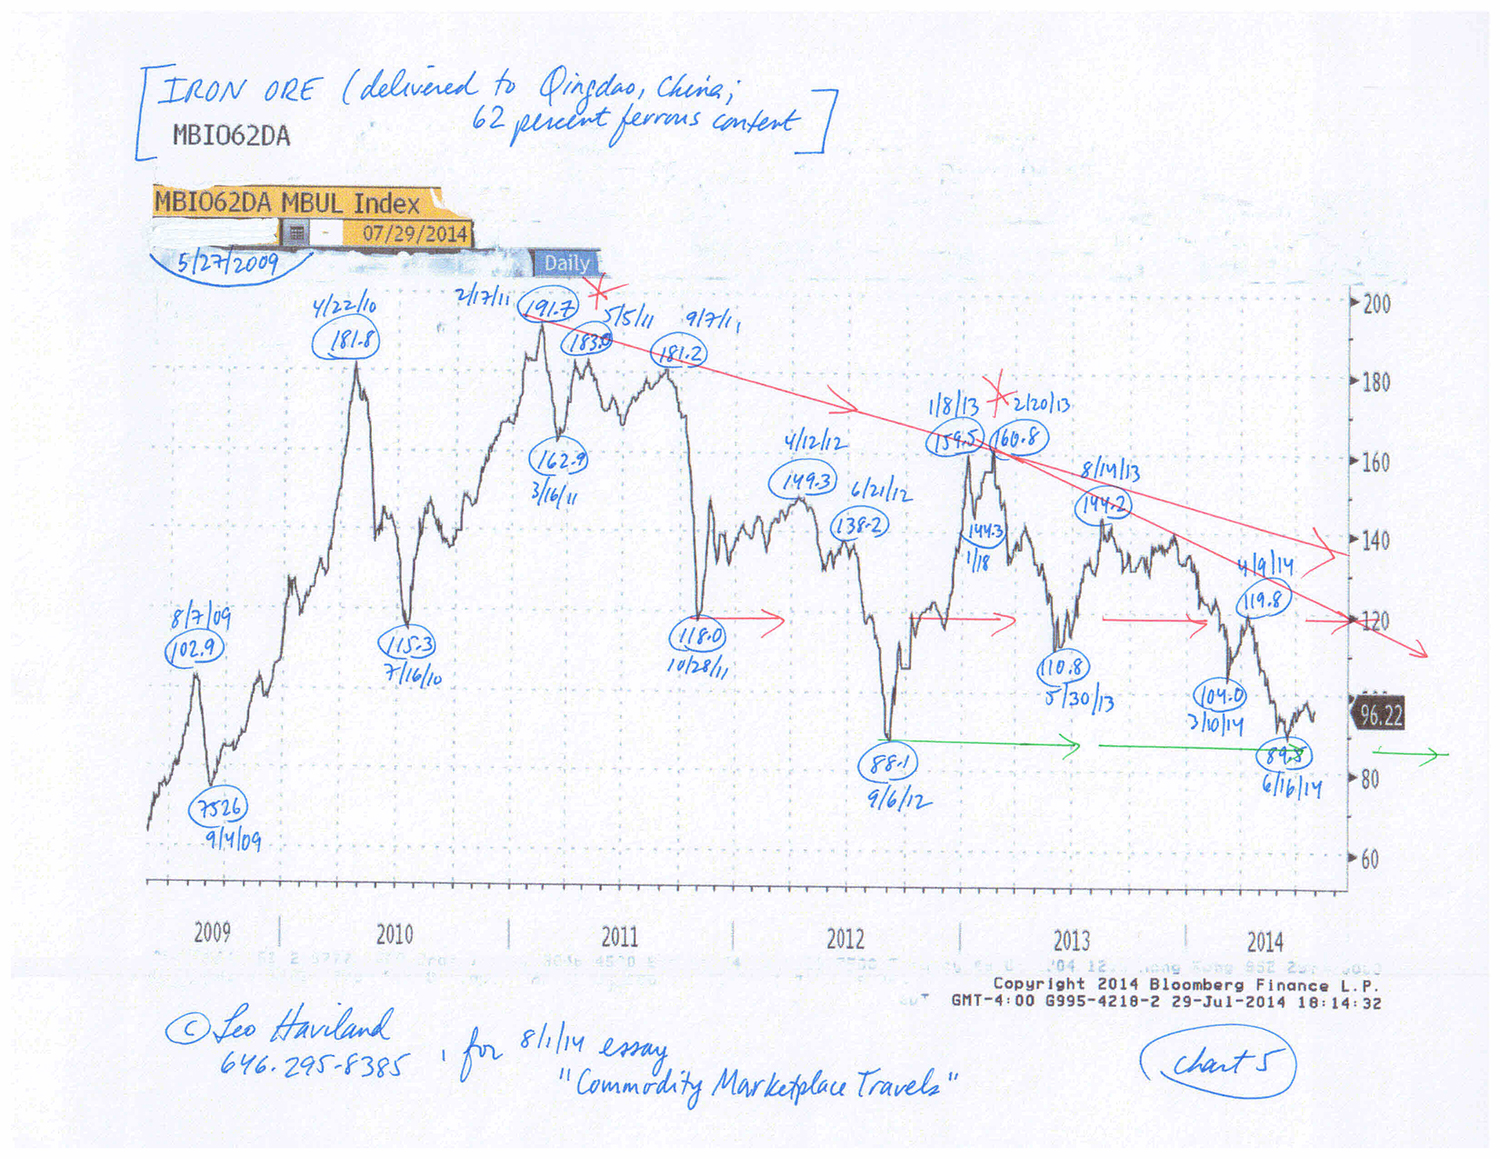 IRON ORE (delivered to Qingdao, China;
62 percent ferrous content
MBIO62DA
MBIO62DA MBUL Index
07/29/2014
5/27/2009
Daily
2/17/11
191.7
4/22/10
181.8
5/5/11
183.0
9/7/11
181.2
200
180
1/8/13
159.5
2/20/13
160.8
160
162.9
3/16/11
4/12/12
149.3
6/21/12
138.2
8/14/13
144.2
144.3
1/18
140
4/9/14
119.8
120
8/7/09
102.9
115.3
7/16/10
118.0
10/28/11
110.8
5/30/13
104.0
3/10/14
96.22
88.1
9/6/12
89.8
6/16/14
80
7526
9/4/09
60
2009 2010 2011 2012 2013 2014
Copyright 2014 Bloomberg Finance L.P.
GMT-4:00 G995-4218-2 29-Jul-2014 18:14:32
© Leo Haviland
646.295-8385, for 8/1/14 essay
"Commodity Marketplace Travels"
Chart 5